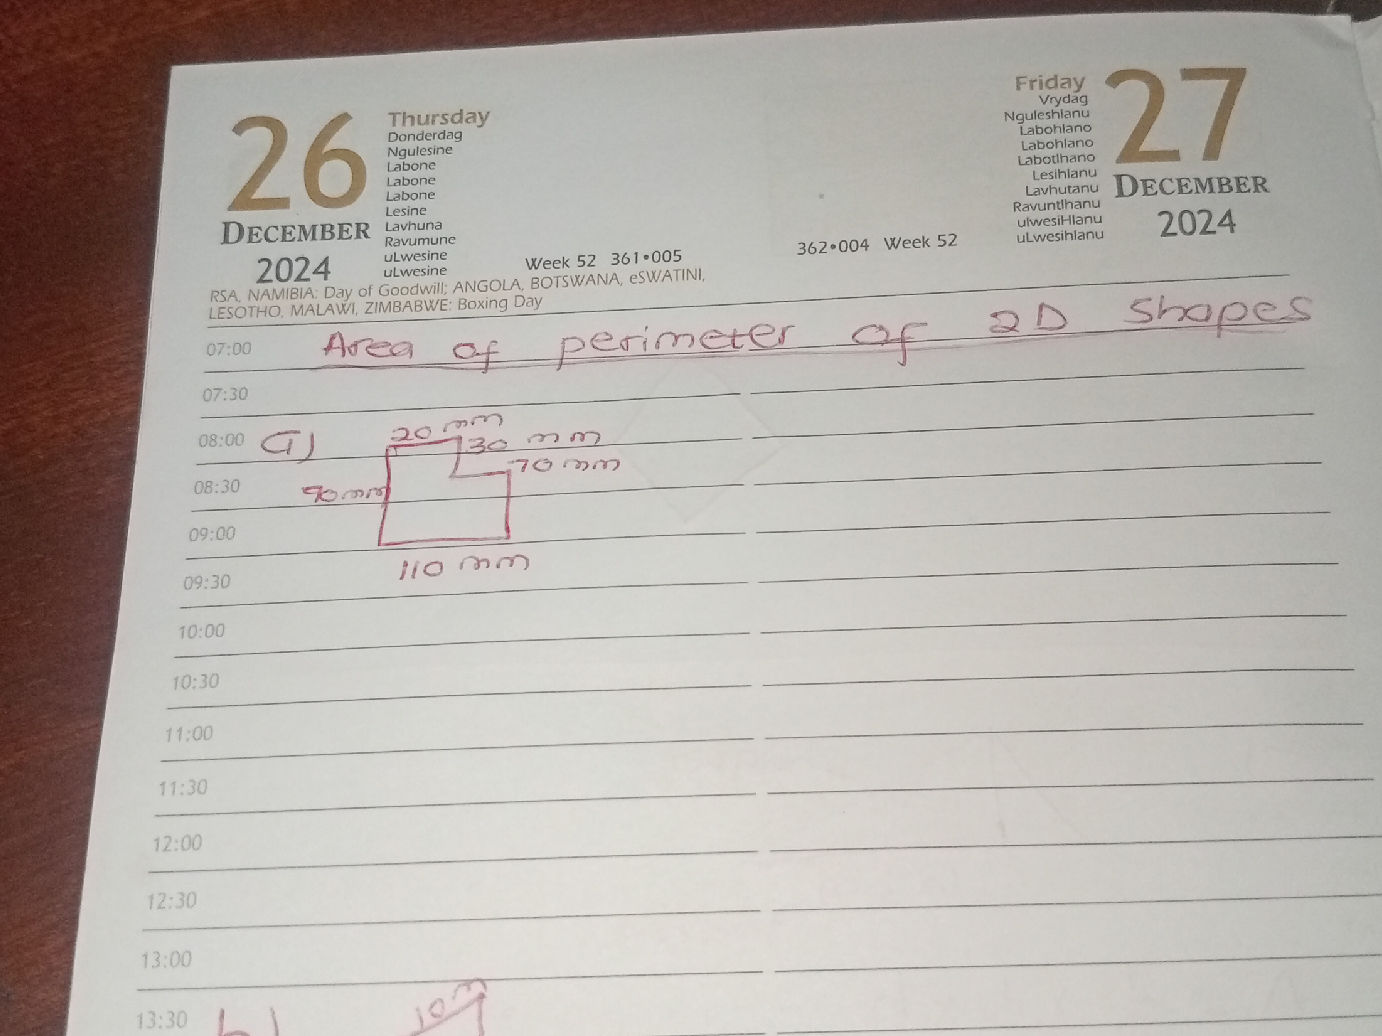 26
Thursday
Donderdag
Ngulesine
Labone
Labone
Labone
Lesine
Lavhuna
Ravumune
uLwesine
uLwesine
DECEMBER
2024
Week 52 361•005
RSA, NAMIBIA: Day of Goodwill; ANGOLA, BOTSWANA, eSWATINI,
LESOTHO, MALAWI, ZIMBABWE: Boxing Day
Friday
Vrydag
Nguleshlanu
Labohlano
Labohlano
Labotlhano
Lesihlanu
Lavhutanu
Ravuntlhanu
ulwesiHlanu
uLwesihlanu
27
DECEMBER
2024
362•004 Week 52
07:00 Area of perimeter of 2D shapes
07:30
08:00 a) 20 mm 30 mm
70 mm
08:30 90mm
09:00
110 mm
09:30
10:00
10:30
11:00
11:30
12:00
12:30
13:00
13:30 b) 10m